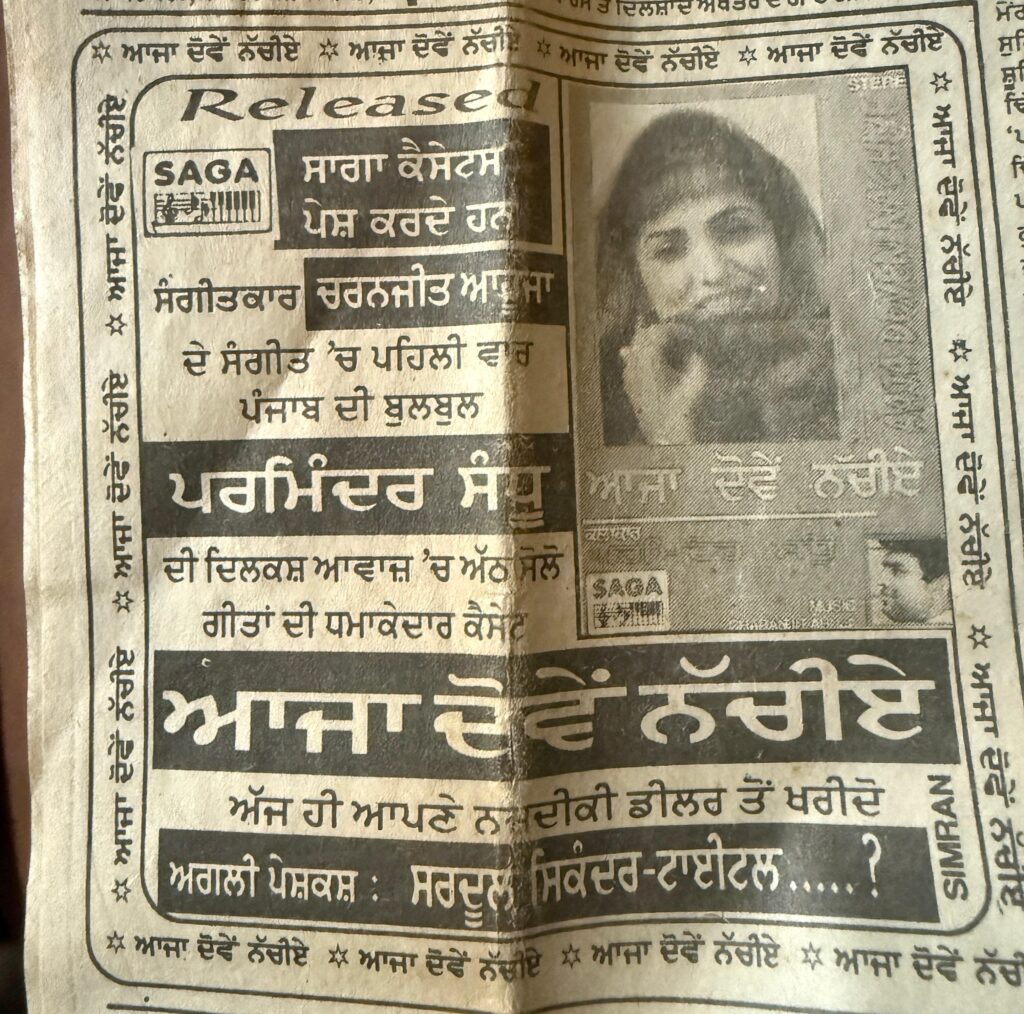 ✩ ਆਜਾ ਦੋਵੇਂ ਨੱਚੀਏ ✩ ਆਜਾ ਦੋਵੇਂ ਨੱਚੀਏ ✩ ਆਜਾ ਦੋਵੇਂ ਨੱਚੀਏ ✩ ਆਜਾ ਦੋਵੇਂ ਨੱਚੀਏ
Released
SAGA
ਸਾਗਾ ਕੈਸੇਟਸ
ਪੇਸ਼ ਕਰਦੇ ਹਨ
ਸੰਗੀਤਕਾਰ ਚਰਨਜੀਤ ਆਹੂਜਾ
ਦੇ ਸੰਗੀਤ 'ਚ ਪਹਿਲੀ ਵਾਰ
ਪੰਜਾਬ ਦੀ ਬੁਲਬੁਲ
ਪਰਮਿੰਦਰ ਸੰਧੂ
ਦੀ ਦਿਲਕਸ਼ ਆਵਾਜ਼ 'ਚ ਅੱਠ ਸੋਲੋ
ਗੀਤਾਂ ਦੀ ਧਮਾਕੇਦਾਰ ਕੈਸੇਟ
STEREO
ਆਜਾ ਦੋਵੇਂ ਨੱਚੀਏ
ਕਲਾਕਾਰ
SAGA
MUSIC
CHARANJIT AHUJA
ਆਜਾ ਦੋਵੇਂ ਨੱਚੀਏ
ਅੱਜ ਹੀ ਆਪਣੇ ਨਜ਼ਦੀਕੀ ਡੀਲਰ ਤੋਂ ਖਰੀਦੋ
ਅਗਲੀ ਪੇਸ਼ਕਸ਼ : ਸਰਦੂਲ ਸਿਕੰਦਰ-ਟਾਈਟਲ.....?
SIMRAN
✩ ਆਜਾ ਦੋਵੇਂ ਨੱਚੀਏ ✩ ਆਜਾ ਦੋਵੇਂ ਨੱਚੀਏ ✩ ਆਜਾ ਦੋਵੇਂ ਨੱਚੀਏ
✩ ਆਜਾ ਦੋਵੇਂ ਨੱਚੀਏ ✩ ਆਜਾ ਦੋਵੇਂ ਨੱਚੀਏ ✩ ਆਜਾ ਦੋਵੇਂ ਨੱਚੀਏ
✩ ਆਜਾ ਦੋਵੇਂ ਨੱਚੀਏ ✩ ਆਜਾ ਦੋਵੇਂ ਨੱਚੀਏ ✩ ਆਜਾ ਦੋਵੇਂ ਨੱਚੀਏ ✩ ਆਜਾ ਦੋਵੇਂ